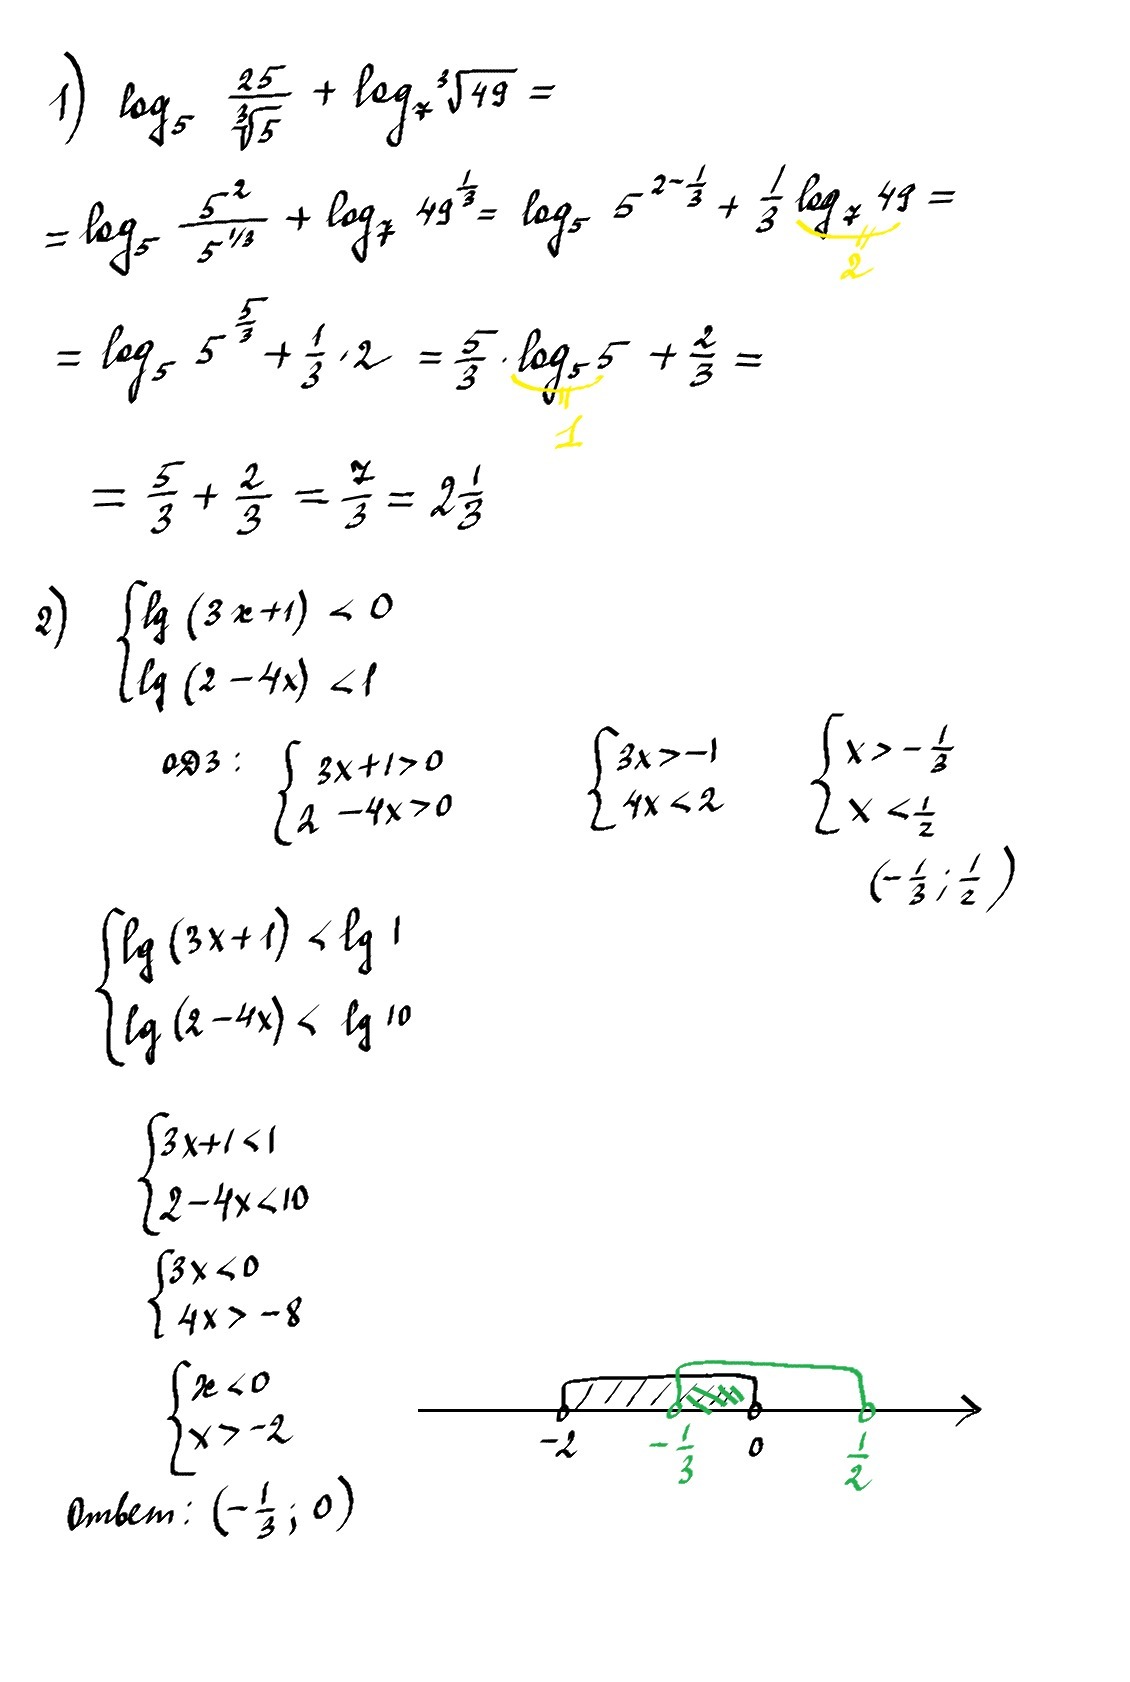 1) log₅ 25/∛5 + log₇ ∛49 =
= log₅ 5²/5^(1/3) + log₇ 49^(1/3) = log₅ 5^(2-1/3) + 1/3 log₇ 49 =
2
= log₅ 5^(5/3) + 1/3 · 2 = 5/3 · log₅ 5 + 2/3 =
1
= 5/3 + 2/3 = 7/3 = 2 1/3
2) { lg (3x+1) < 0
lg (2-4x) < 1
ОДЗ: { 3x+1>0 { 3x>-1 { x>-1/3
2-4x>0 4x<2 x<1/2
(-1/3; 1/2)
{ lg (3x+1) < lg 1
lg (2-4x) < lg 10
{ 3x+1<1
2-4x<10
{ 3x<0
4x>-8
{ x<0
x>-2
-2 -1/3 0 1/2
Ответ: (-1/3; 0)